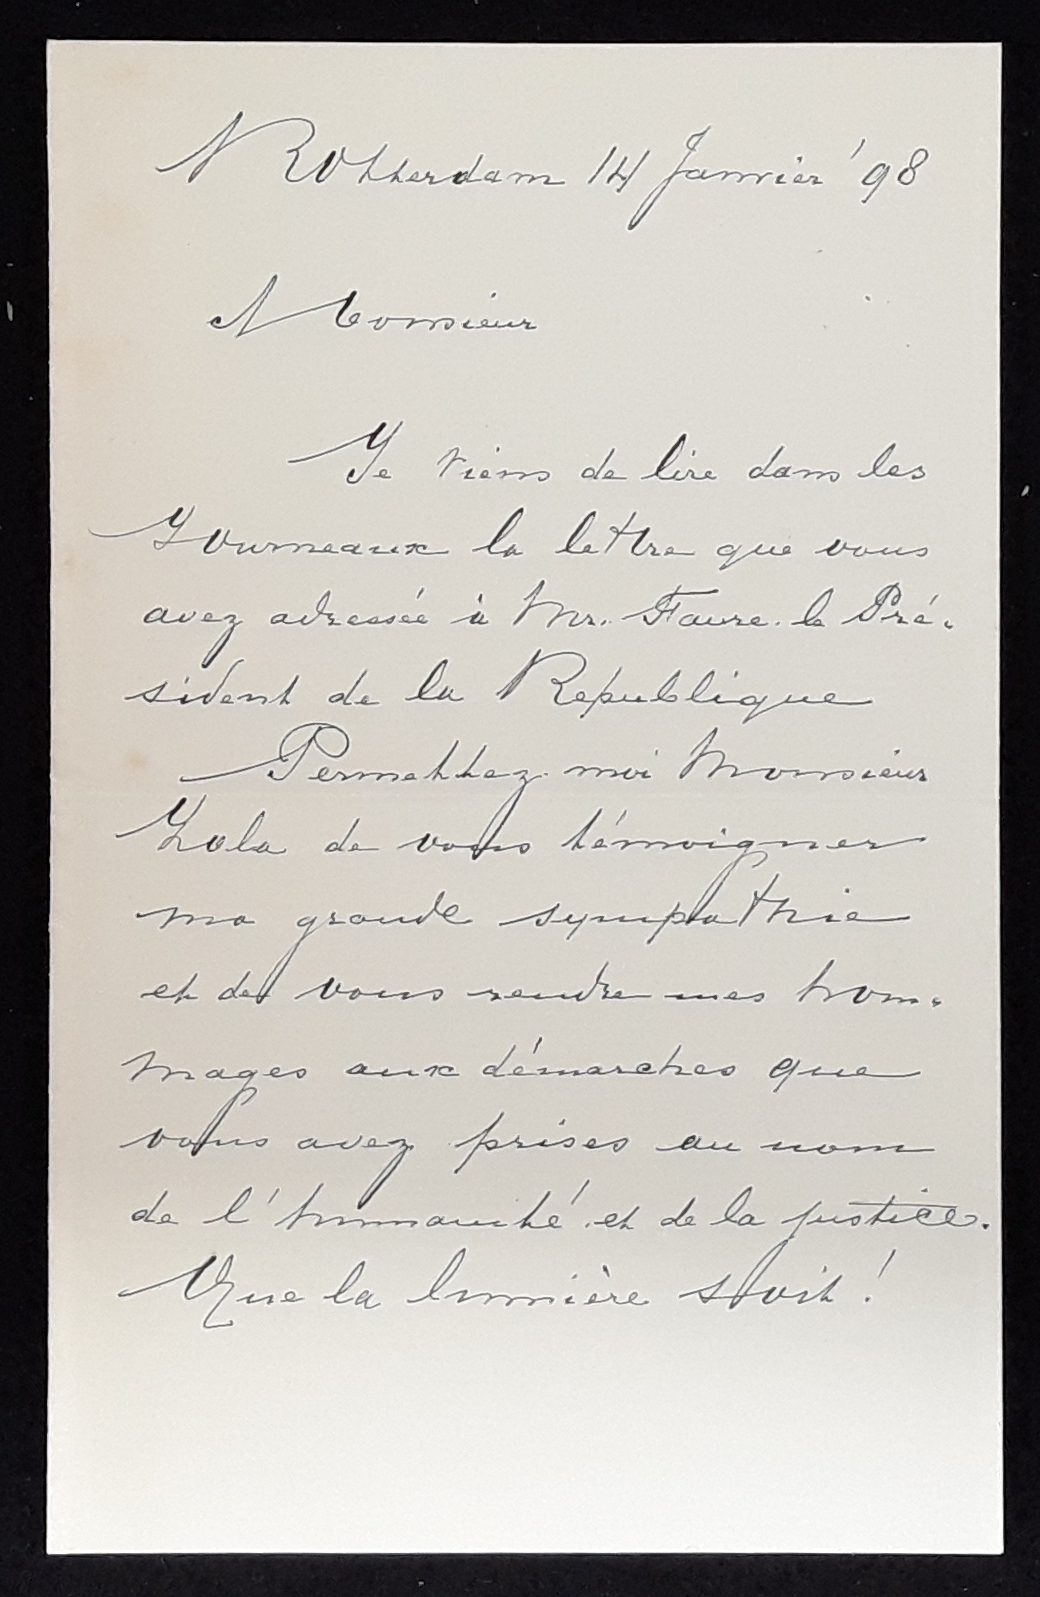 Rotterdam 14 Janvier '98
Monsieur
Je viens de lire dans les
Journeaux la lettre que vous
avez adressée à Mr. Faure. le Pré-
sident de la Republique
Permettez moi Monsieur
Zola de vous témoigner
ma grande sympathie
et de vous rendre mes hom-
mages aux démarches que
vous avez prises au nom
de l'humanité et de la justice.
Que la lumière soit!